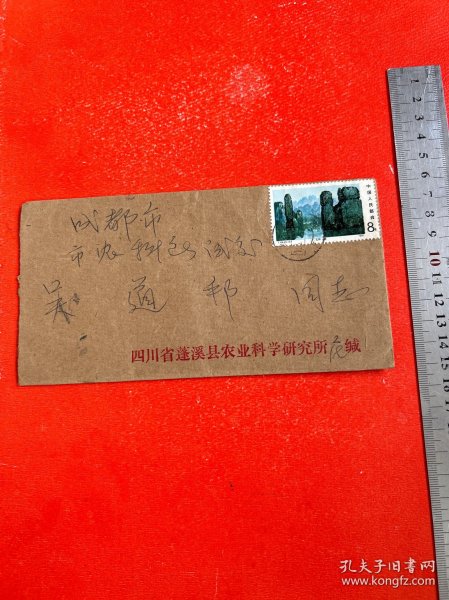 中国人民邮政
8分
成都市
市农科所
通邦 同志
四川省蓬溪县农业科学研究所 缄
1
2
3
4
5
6
7
8
9
10
11
12
13
14
15
16
17
孔夫子旧书网
www.kongfz.com